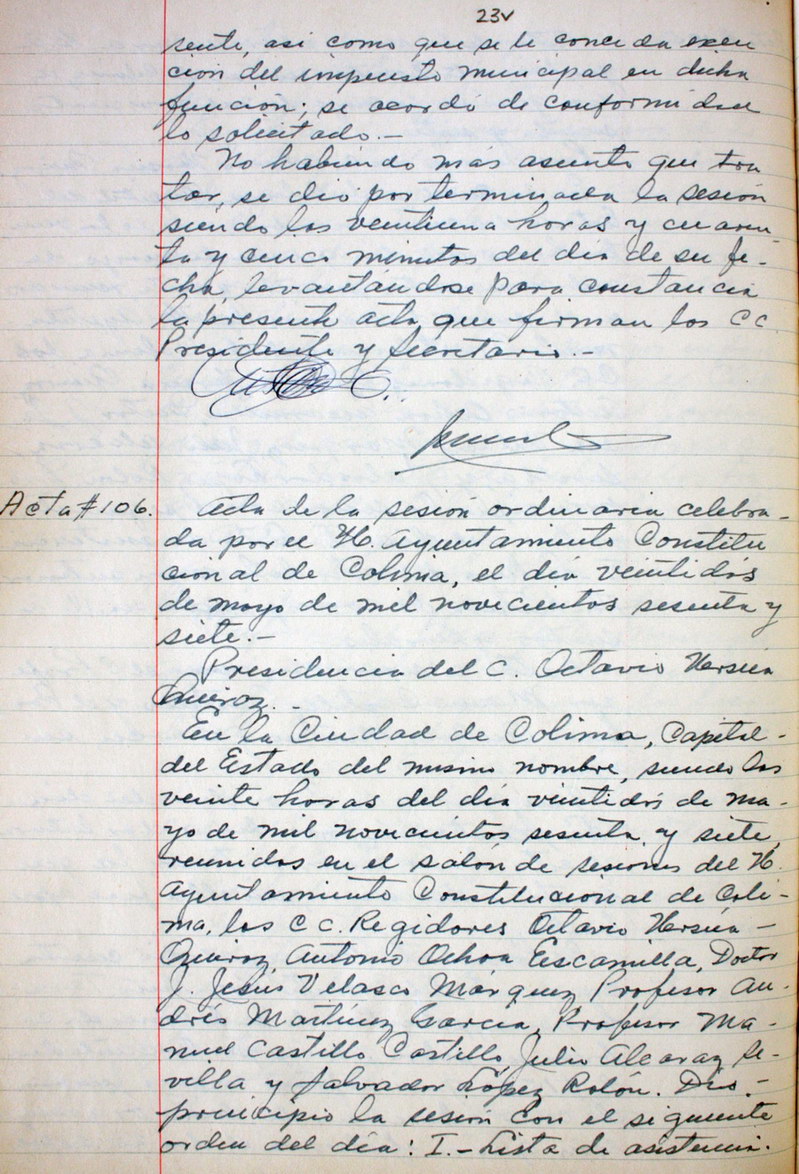 23v
sente, asi como que se le conceda exen
ción del impuesto municipal en dicha
función; se acordó de conformidad
lo solicitado.-
No habiendo más asunto que tra
tar, se dió por terminada la sesión
siendo las veintiuna horas y cuaren
ta y cinco minutos del día de su fe-
cha, levantándose para constancia
la presente acta que firman los CC.
Presidente y Secretario.-
Acta #106.
Acta de la sesión ordinaria celebra-
da por el H. Ayuntamiento Constitu
cional de Colima, el día veintidós
de mayo de mil novecientos sesenta y
siete.-
Presidencia del C. Octavio
Quiroz.-
En la Ciudad de Colima, Capital-
del Estado del mismo nombre, siendo las
veinte horas del día veintidós de ma-
yo de mil novecientos sesenta y siete,
reunidos en el salón de sesiones del H.
Ayuntamiento Constitucional de Coli-
ma, los CC. Regidores Octavio
Quiroz, Antonio Ochoa Escamilla, Doctor
J. Jesús Velasco Márquez, Profesor An-
drés Martínez García, Profesor Ma-
nuel Castillo Castillo, Julio Alcaraz Se-
villa y Salvador López Rolón. Dió-
principio la sesión con el siguiente
orden del día: I.- Lista de asistencia.